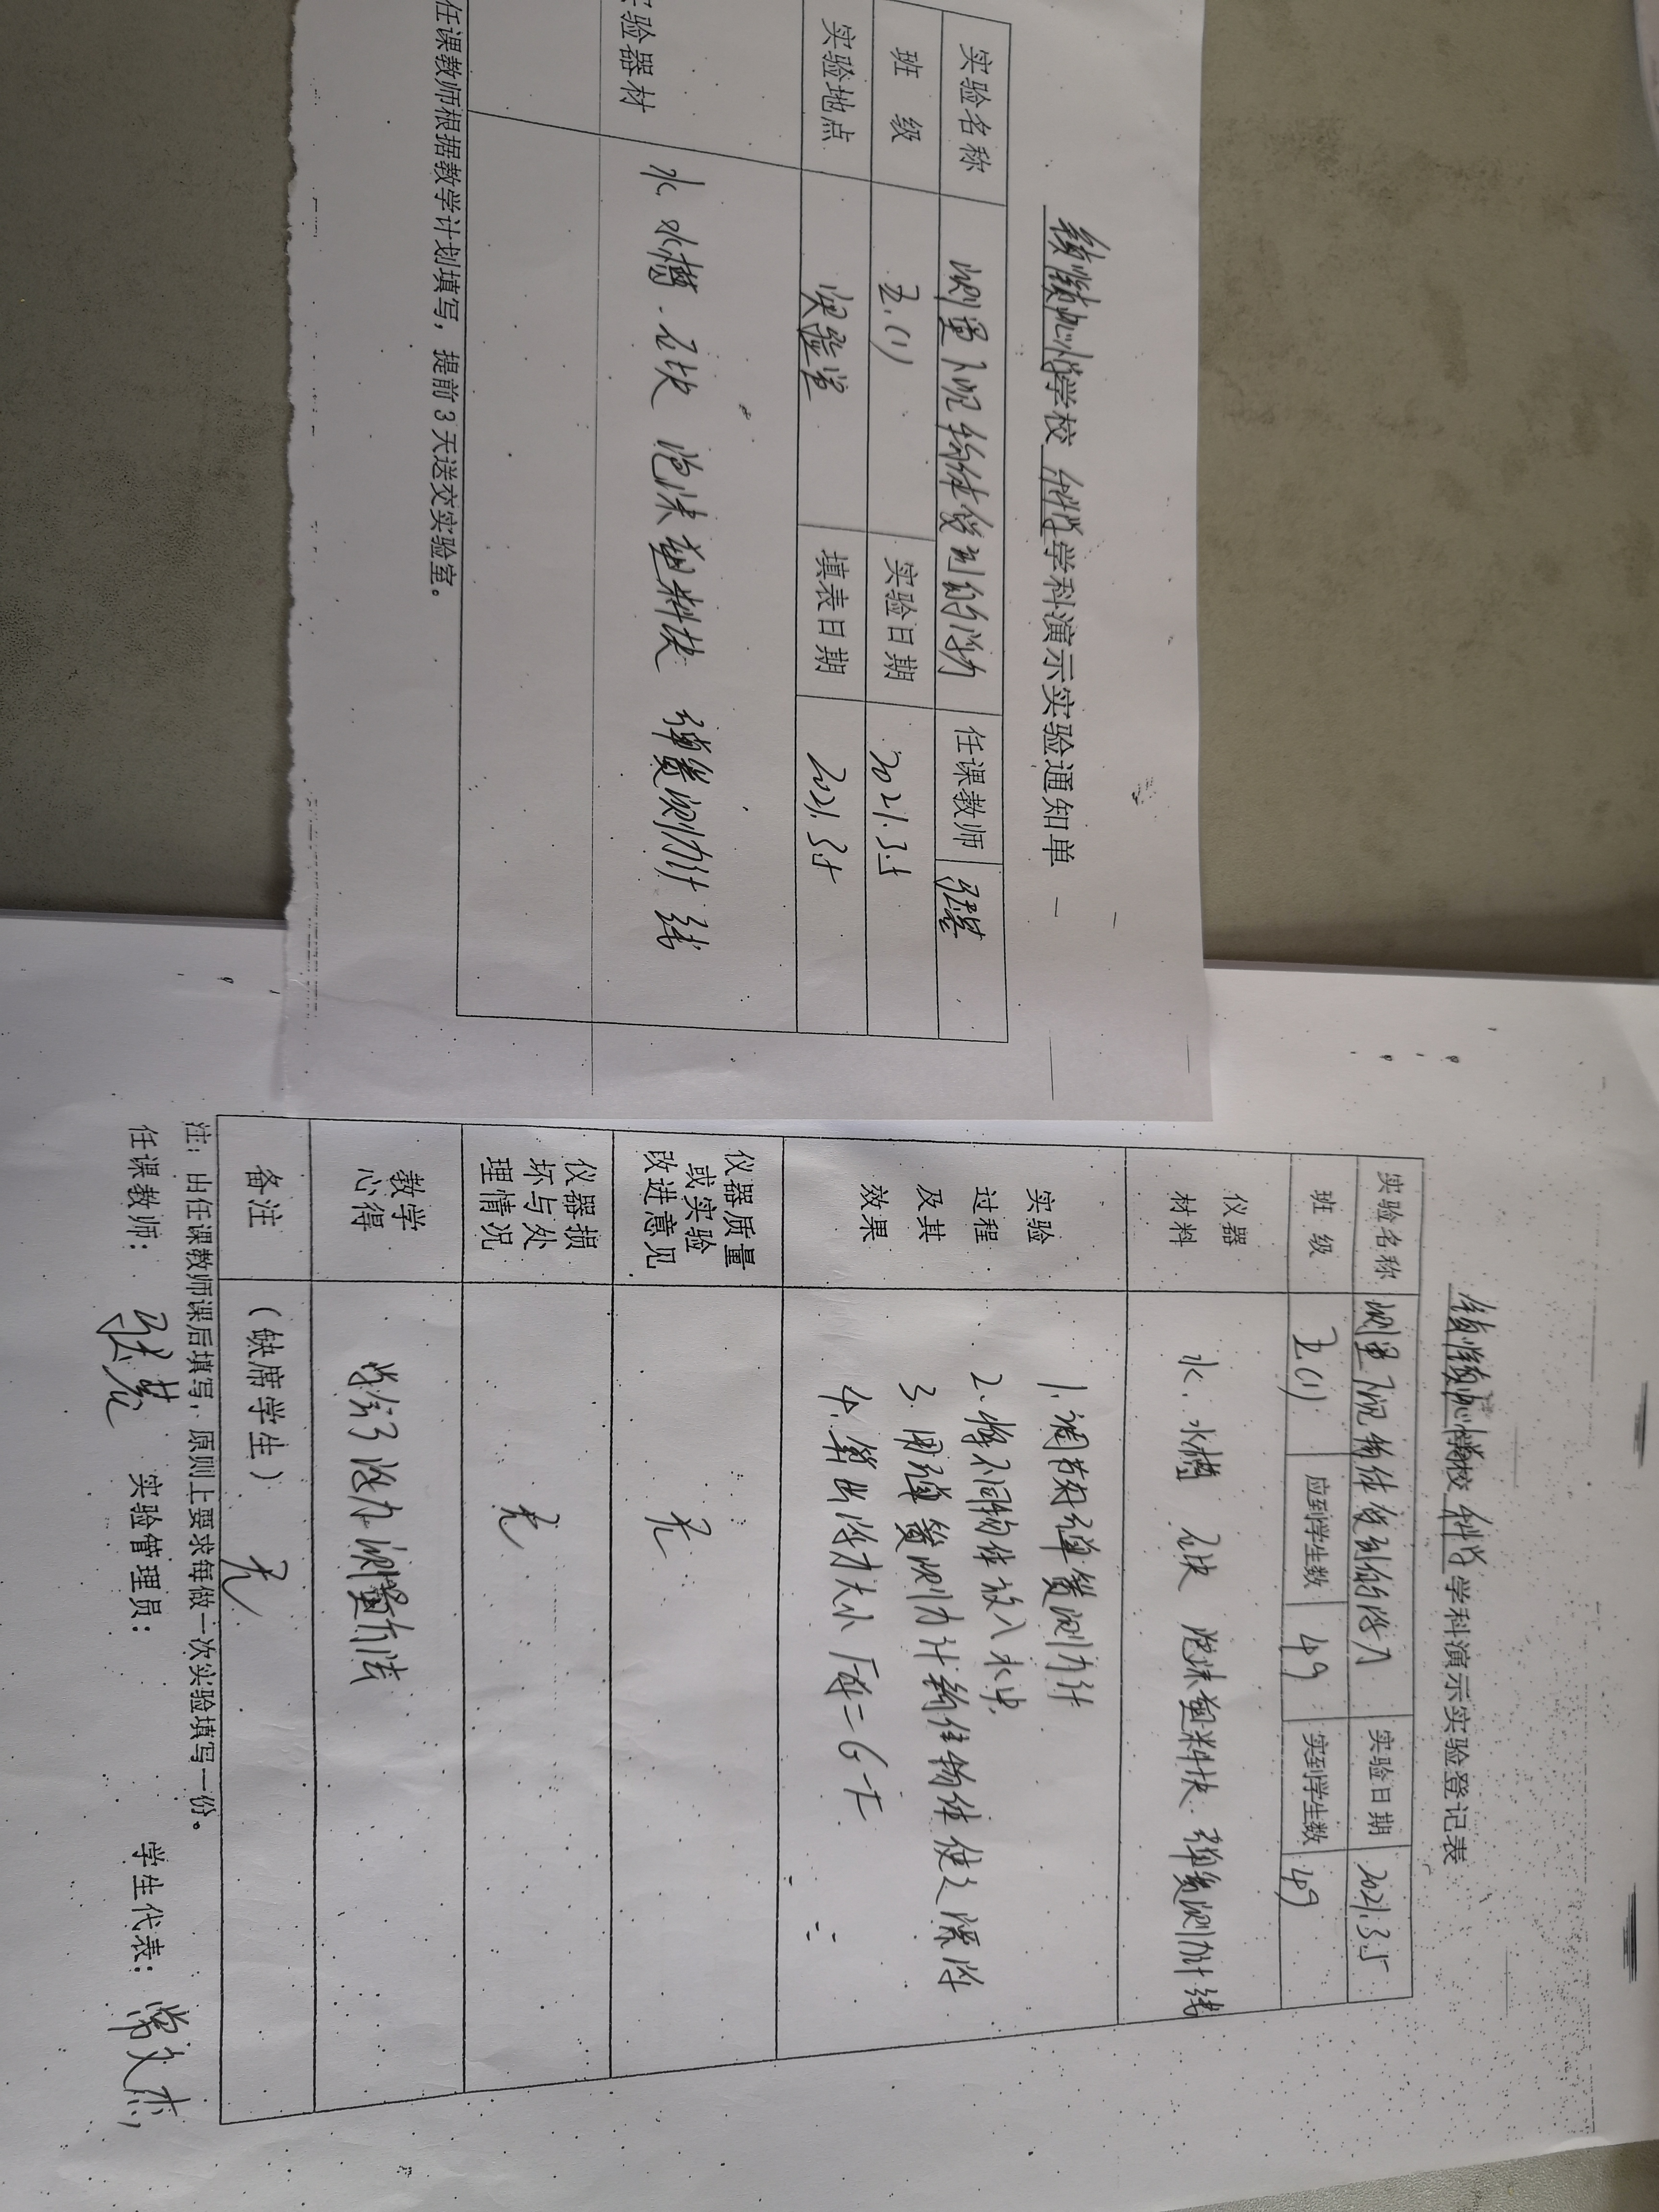 学校 科学 学科演示实验通知单
实验名称 测量下沉物体受到的浮力 任课教师 张慧
班 级 五.(1) 实验日期 2021.3.5
实验地点 实验室 填表日期 2021.3.5
验器材 水 水槽 石块 泡沫塑料块 弹簧测力计 线
任课教师根据教学计划填写，提前3天送交实验室。
学校 科学 学科演示实验登记表
实验名称 测量下沉物体受到的浮力 实验日期 2021.3.5
班 级 五(1) 应到学生数 49 实到学生数 49
仪器材料 水. 水槽 石块 泡沫塑料块 弹簧测力计 线
实验过程及其效果
1.调节弹簧测力计
2.将不同物体放入水中
3.用弹簧测力计勾住物体使之
4.算出浮力大小 F浮=G-F
仪器质量或实验改进意见 无
仪器损坏与处理情况 无
教学心得 学会了浮力测量方法
备注 （缺席学生） 无
注：由任课教师课后填写，原则上要求每做一次实验填写一份。
任课教师： 张慧 实验管理员： 学生代表： 常文杰